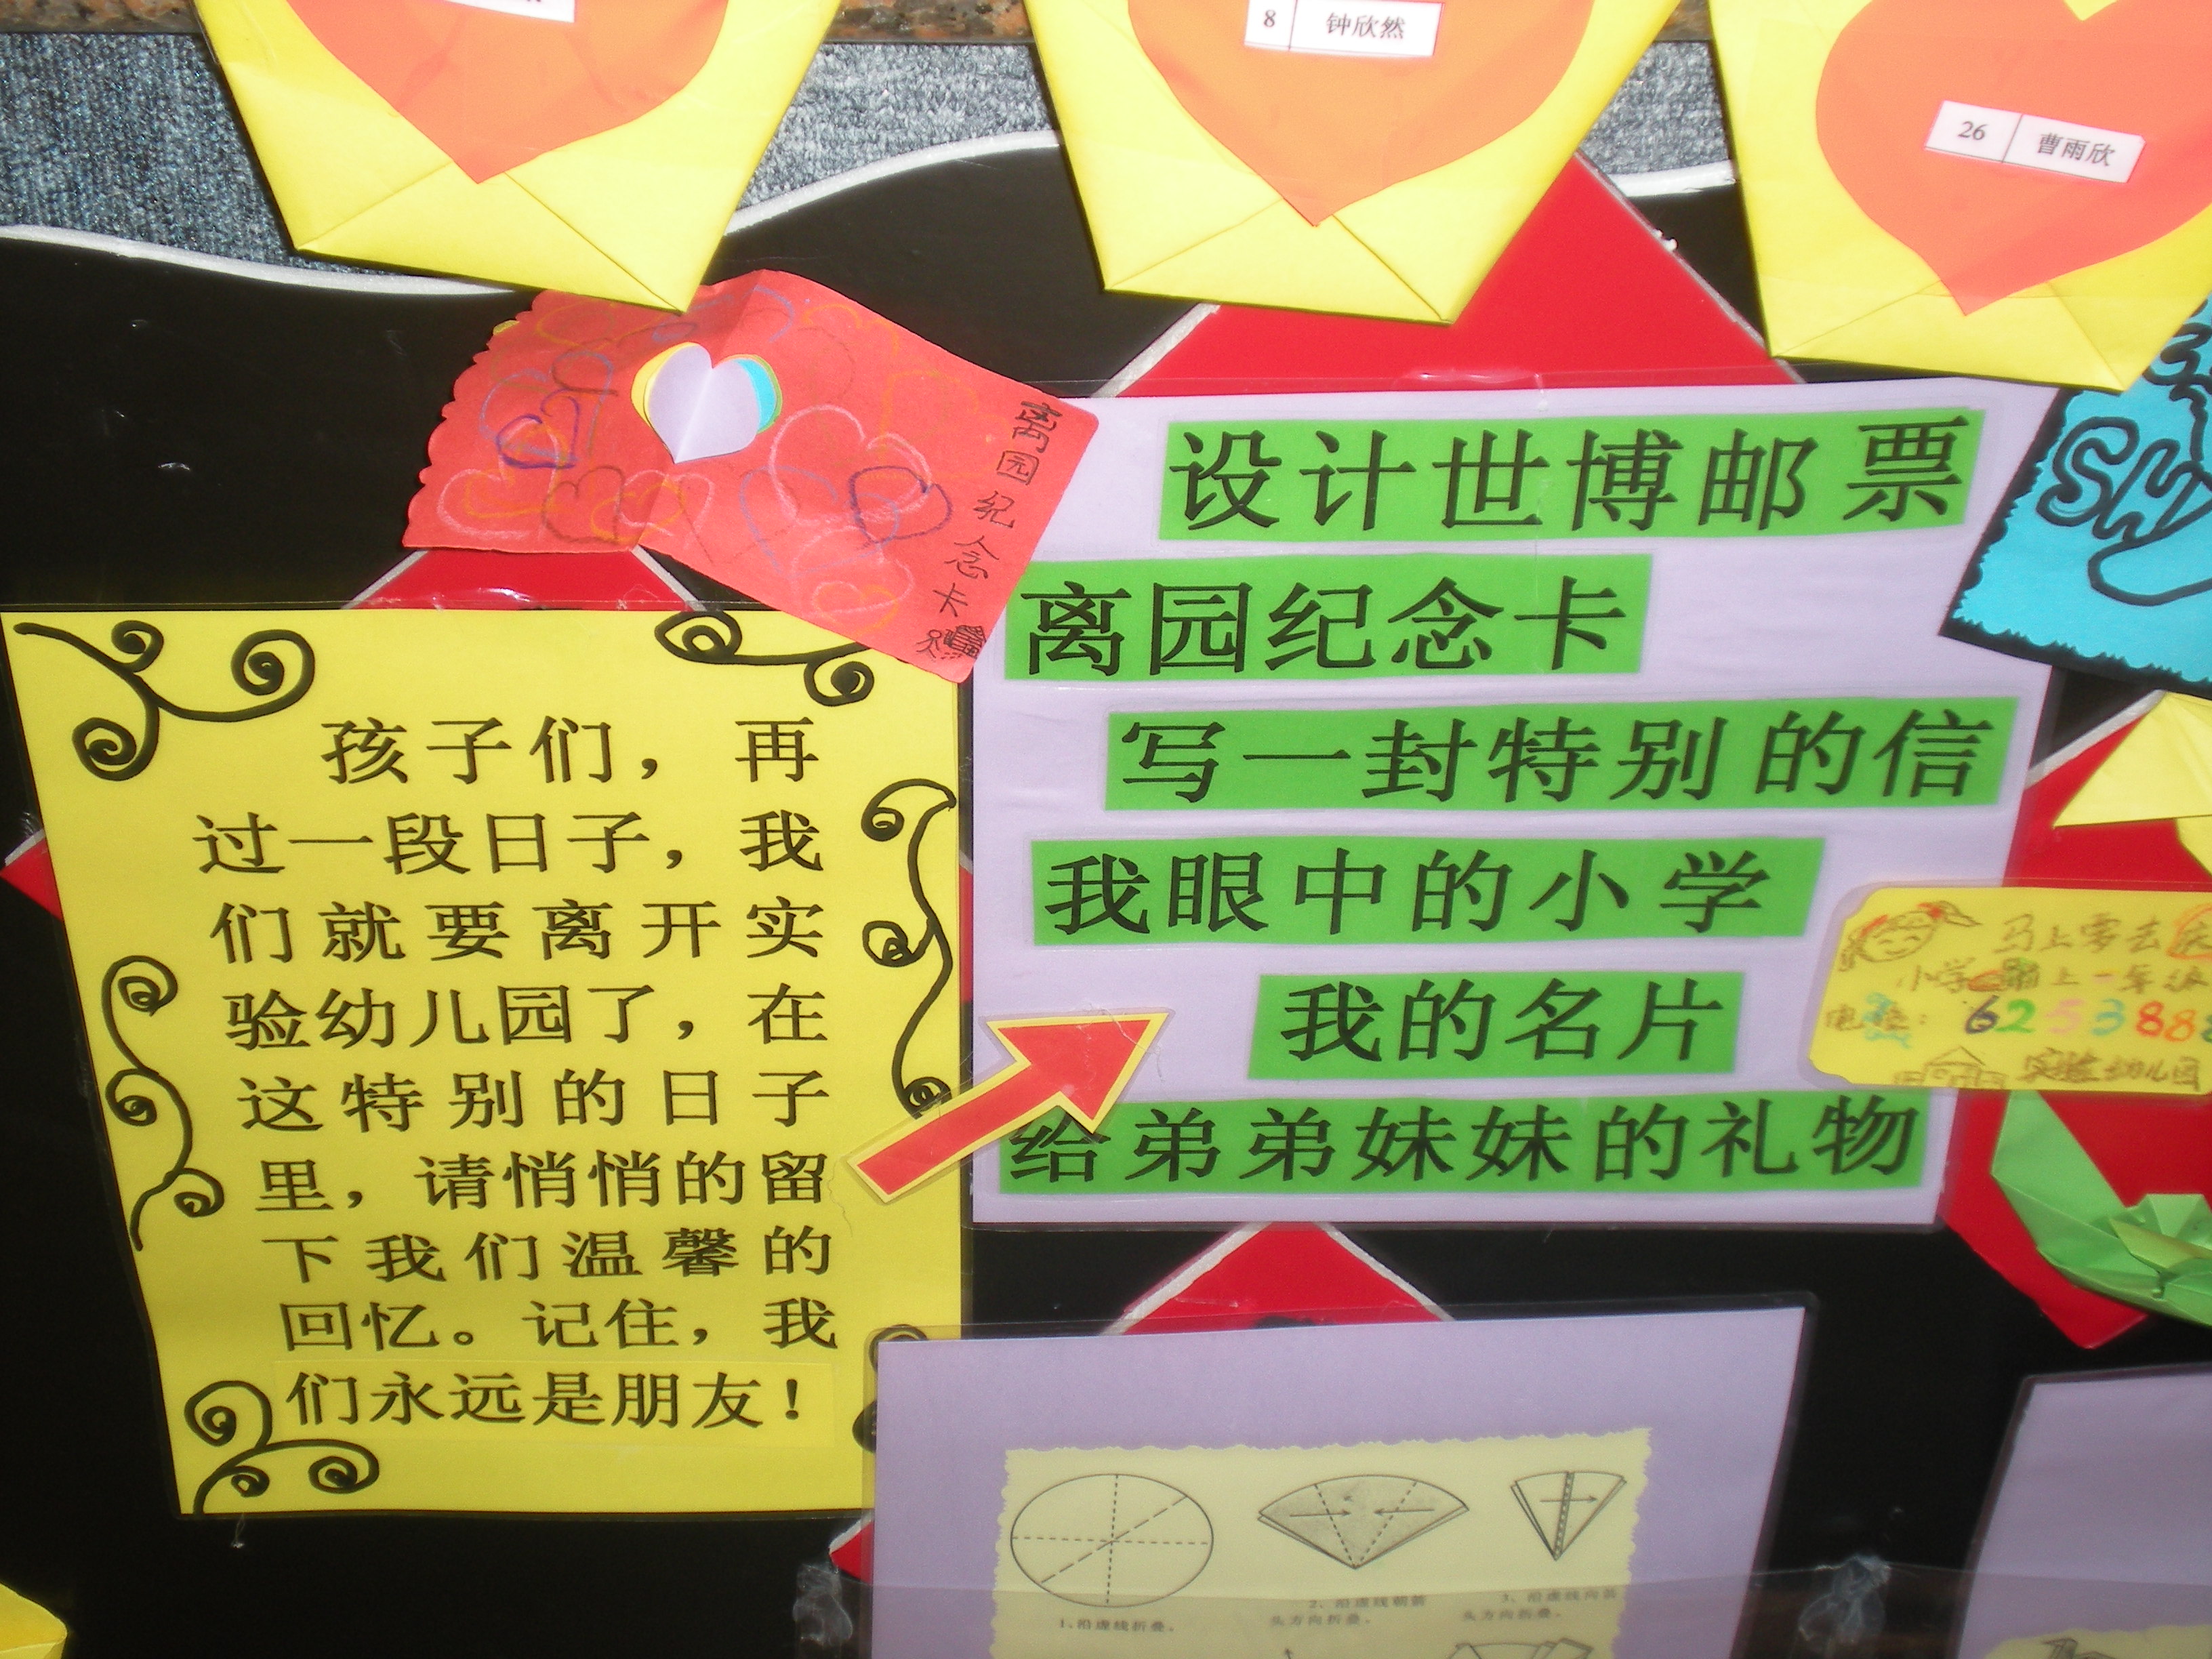 8 钟欣然
26 曹雨欣
离园纪念卡
设计世博邮票
离园纪念卡
写一封特别的信
我眼中的小学
我的名片
给弟弟妹妹的礼物
孩子们，再
过一段日子，我
们就要离开实
验幼儿园了，在
这特别的日子
里，请悄悄的留
下我们温馨的
回忆。记住，我
们永远是朋友！
马上要去
小学 上一年级
电话：625388
实验幼儿园
1、沿虚线折叠。
2、沿虚线朝箭
头方向折叠。
3、沿虚线向箭
头方向折叠。